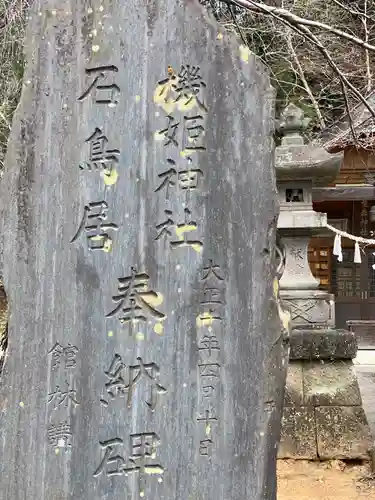 機姫神社
石鳥居
奉納碑
大正十年四月十日
館林講